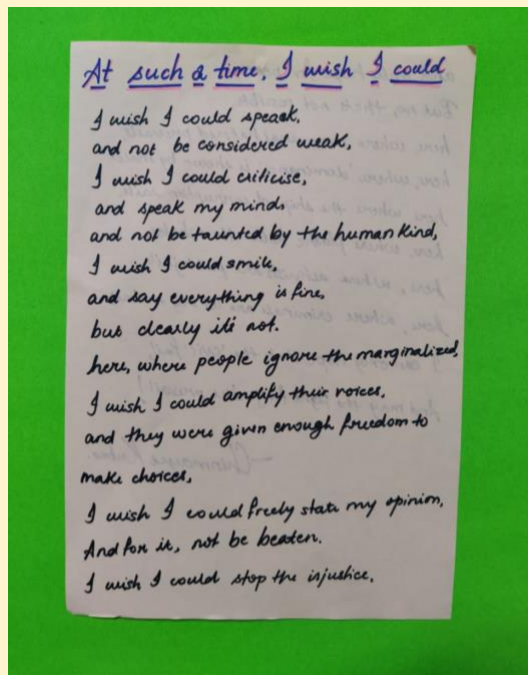 At such a time, I wish I could
I wish I could speak,
and not be considered weak,
I wish I could criticise,
and speak my mind,
and not be taunted by the human kind,
I wish I could smile,
and say everything is fine,
but clearly it's not.
here, where people ignore the marginalized,
I wish I could amplify their voices,
and they were given enough freedom to
make choices,
I wish I could freely state my opinion,
And for it, not be beaten.
I wish I could stop the injustice,